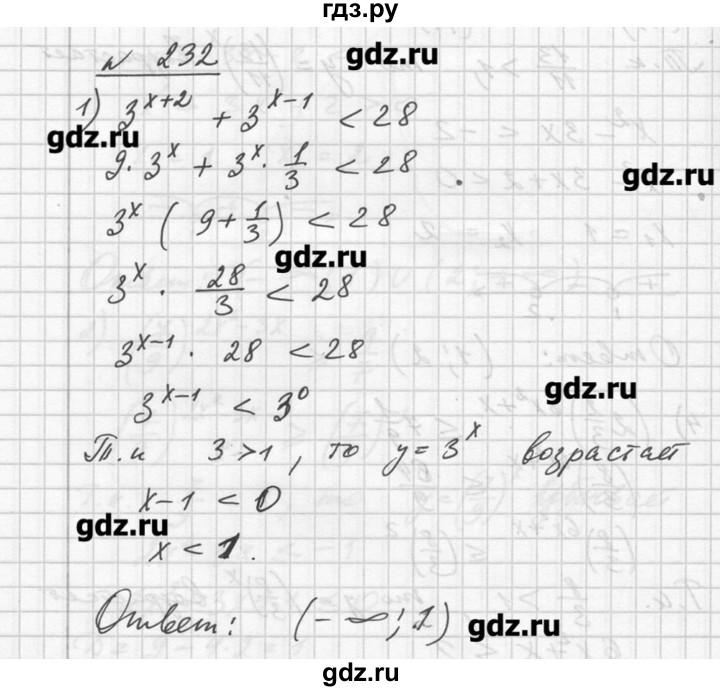 гдз.ру
№ 232
gdz.ru
1) 3^{x+2} + 3^{x-1} < 28
gdz.ru
9 · 3^x + 3^x · 1/3 < 28
gdz.ru
3^x (9 + 1/3) < 28
gdz.ru
3^x · 28/3 < 28
3^{x-1} · 28 < 28
gdz.ru
3^{x-1} < 3^0
Т.к 3 > 1, то y = 3^x возрастает
x - 1 < 0
gdz.ru
x < 1.
Ответ: (-∞; 1)
gdz.ru
gdz.ru